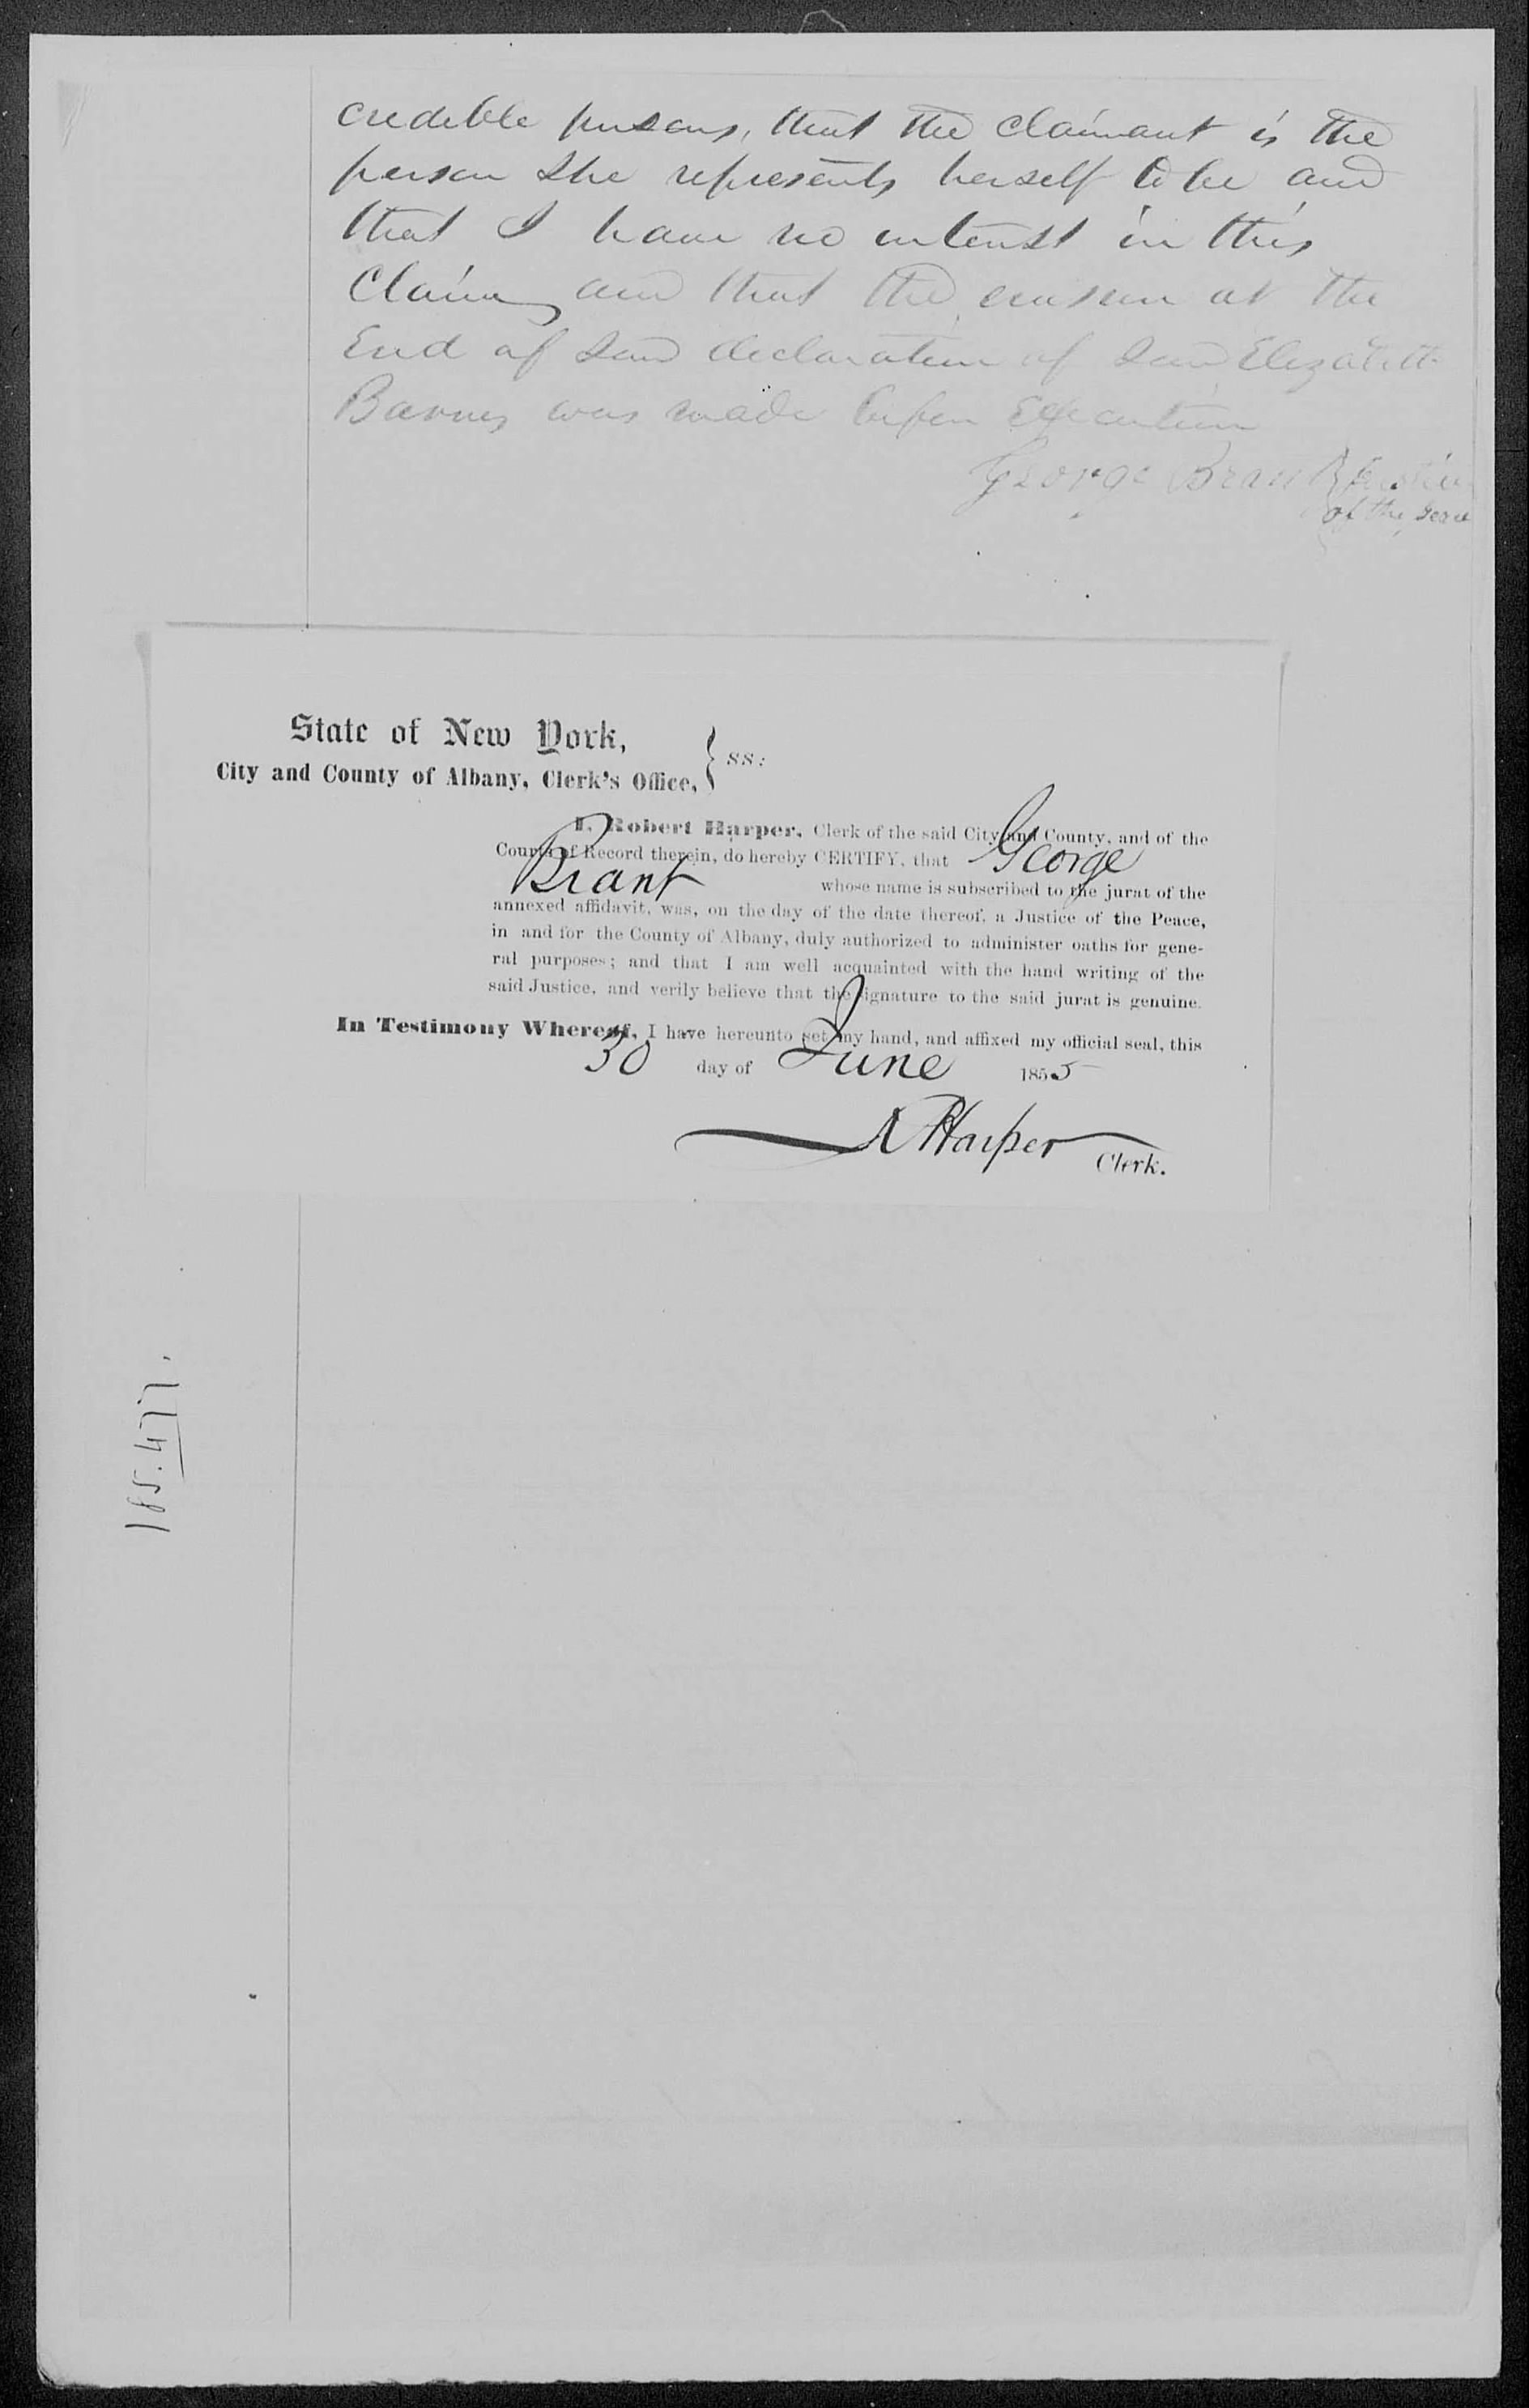 credible persons, that the claimant is the
person she represents herself to be and
that I have no interest in this
Claim, and that the erasure at the
End of said declaration of said Elizabeth
Barnes was made before Execution
George Brant Justice
of the peace
State of New York,
City and County of Albany, Clerk's Office, } ss:
I, Robert Harper, Clerk of the said City and County, and of the
Courts of Record therein, do hereby CERTIFY, that George
Brant whose name is subscribed to the jurat of the
annexed affidavit, was, on the day of the date thereof, a Justice of the Peace,
in and for the County of Albany, duly authorized to administer oaths for gene-
ral purposes; and that I am well acquainted with the hand writing of the
said Justice, and verily believe that the signature to the said jurat is genuine.
In Testimony Whereof, I have hereunto set my hand, and affixed my official seal, this
30 day of June 1855
R Harper Clerk.
185.477.